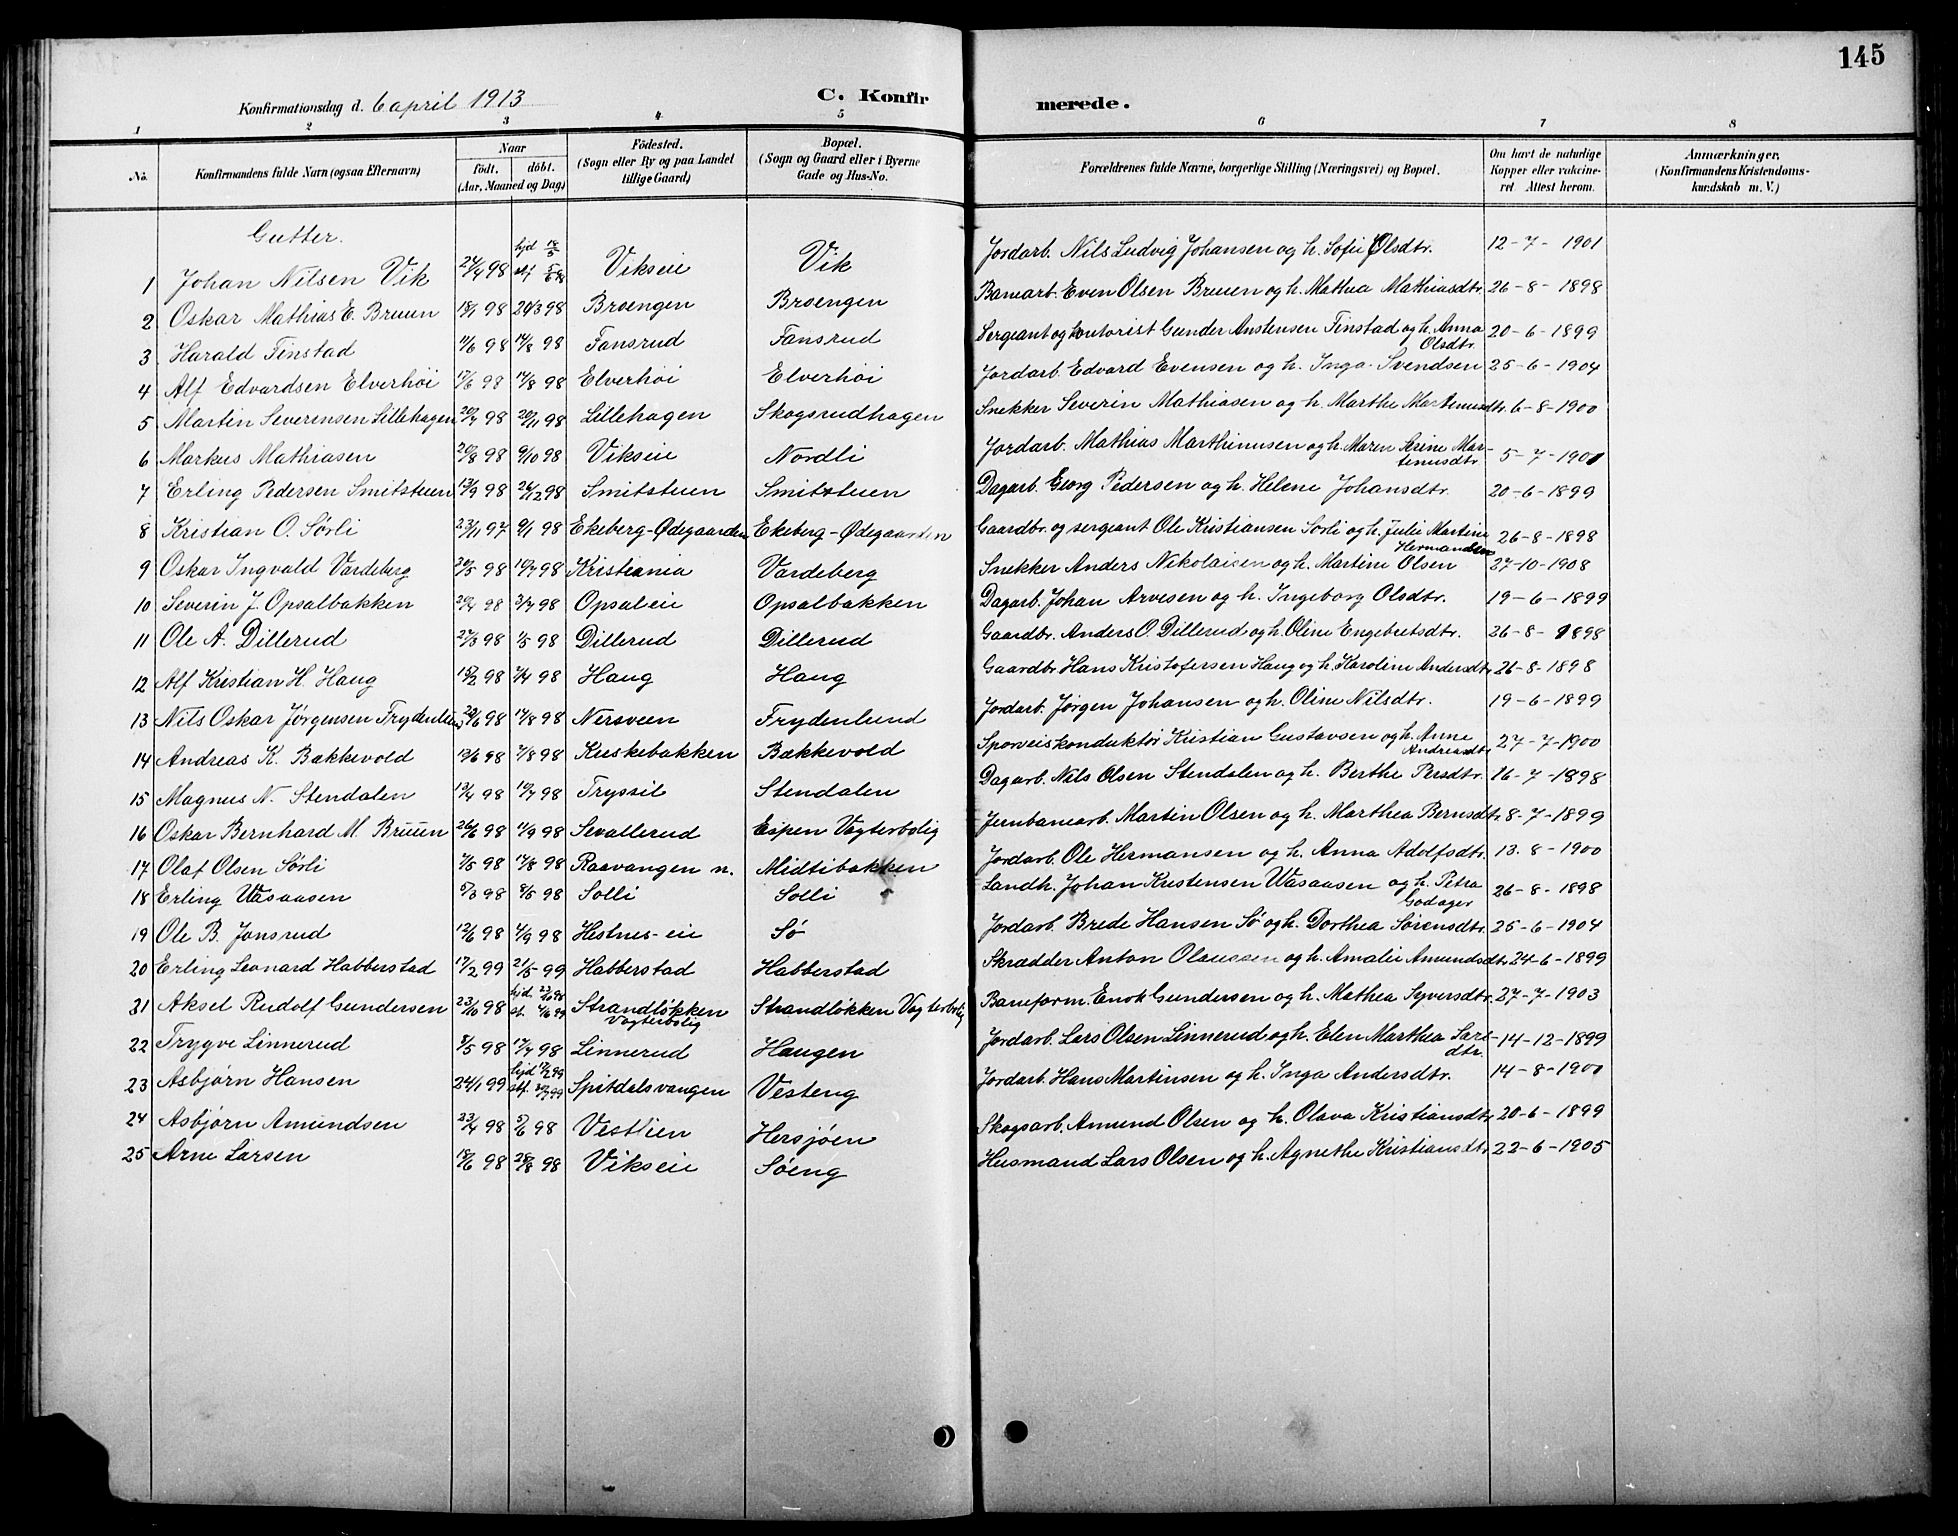 145
Konfirmationsdag d. 6 april 1913 C. Konfirmerede.
1 2 3 4 5 6 7 8
No. Konfirmandens fulde Navn (ogsaa Efternavn) Naar födt. döbt. (Aar, Maaned og Dag) Födested. (Sogn eller By og paa Landet tillige Gaard) Bopæl. (Sogn og Gaard eller i Byerne Gade og Hus-No. Forældrenes fulde Navne, borgerlige Stilling (Næringsvei) og Bopæl. Om havt de naturlige Kopper eller vakcineret Attest herom. Anmærkninger. (Konfirmandens Kristendomskundskab m. V.)
Gutter.
1 Johan Nilsen Vik 24/4 98 hjd Vikseie Vik Jordarb. Nils Ludvig Johansen og h. Sofie Olsdtr. 12-7-1901
2 Oskar Mathias E. Bruun 18/1 98 20/3 98 Broengen Broengen Banearb. Even Olsen Bruun og h. Mathea Mathiasdtr. 26-8-1898
3 Harald Finstad 11/6 98 14/8 98 Fansrud Fansrud Sergeant og kontorist Gunder Anstensen Finstad og h. Anna Olsdtr. 20-6-1899
4 Alf Edvardsen Elverhöi 17/6 98 14/8 98 Elverhöi Elverhöi Jordarb. Edvard Evensen og h. Inga Svendsen 25-6-1904
5 Martin Severensen Lillehagen 20/7 98 20/11 98 Lillehagen Skogsrudhagen Snekker Severin Mathiasen og h. Marthe Martinusdtr. 6-8-1900
6 Markus Mathiasen 20/8 98 9/10 98 Vikseie Nordli Jordarb. Mathias Marthinusen og h. Maren Martinusdtr. 5-7-1901
7 Erling Pedersen Smitstuen 13/9 98 26/12 98 Smitstuen Smitstuen Dagarb. Georg Pedersen og h. Helene Johansdtr. 20-6-1899
8 Kristian O. Sörli 23/11 97 9/1 98 Ekeberg-Ødegaarden Ekeberg-Ødegaarden Gaardbr. og sergeant Ole Kristiansen Sörli og h. Julie Martine Hermansen 26-8-1898
9 Oskar Ingvald Vardeberg 20/5 98 10/7 98 Kristiania Vardeberg Snekker Anders Nikolaisen og h. Martine Olsen 27-10-1908
10 Severin J. Opsalbakken 20/4 98 3/7 98 Opsaleie Opsalbakken Dagarb. Johan Arvesen og h. Ingeborg Olsdtr. 19-6-1899
11 Ole A. Dillerud 27/3 98 1/5 98 Dillerud Dillerud Gaardbr. Anders O. Dillerud og h. Oline Engebretsdtr. 26-8-1898
12 Alf Kristian H. Haug 15/2 98 /4 98 Haug Haug Gaardbr Hans Kristofersen Haug og h. Karoline Andersdtr. 26-8-1898
13 Nils Oskar Jörgensen Frydenlund 20/6 98 14/8 98 Nersveen Frydenlund Jordarb. Jørgen Johansen og h. Oline Nilsdtr. 19-6-1899
14 Andreas K. Bakkevold 12/6 98 7/8 98 Kuskebakken Bakkevold Sporveiskonduktör Kristian Gustavsen og h. Anne Andreasdtr. 27-7-1900
15 Magnus N. Stendalen 13/4 98 10/7 98 Tryssil Stendalen Dagarb. Nils Olsen Stendalen og h. Berthe Persdtr. 16-7-1898
16 Oskar Bernhard M. Bruun 26/6 98 11/9 98 Sevallerud Espen Vogterbolig Jernbanearb. Martin Olsen og h. Marthea Bernsdtr. 8-7-1899
17 Olaf Olsen Sörli 98 98 Raavangen n. Midtibakken Jordarb. Ole Hermansen og h. Anna Adolfsdtr. 13.8-1900
18 Erling Wasaasen 5/3 98 98 Solli Solli Landh. Johan Kristensen Wasaasen og h. Petra Godager 26-8-1898
19 Ole B. Jonsrud 12/6 98 4/9 98 Hestnes-eie Sö Jordarb. Brede Hansen Sö og h. Dorthea Sörensdtr. 25-6-1904
20 Erling Leonard Habberstad 17/2 99 21/5 99 Habberstad Habberstad Skrædder Anton Olaussen og h. Amalie Amundsdtr. 24-6-1899
21 Aksel Rudolf Gundersen 23/10 98 hjd. Strandlökken Vogterbolig Strandlökken Vogterbolig Baneform. Enok Gundersen og h. Mathea Syversdtr. 27-7-1903
22 Trygve Linnerud 8/5 98 17/7 98 Linnerud Haugen Jordarb. Lars Olsen Linnerud og h. Elen Marthea Larsdtr. 14-12-1899
23 Asbjørn Hansen 24/1 99 hjd Spitdalsvangen Vesteng Jordarb. Hans Martinsen og h. Inga Andersdtr. 14-8-1900
24 Asbjørn Amundsen 23/4 98 5/6 98 Vestlien Hersjöen Skogsarb. Amund Olsen og h. Olava Kristiansdtr. 20-6-1899
25 Arne Larsen 18/6 98 28/8 98 Vikseie Söeng Husmand Lars Olsen og h. Agnethe Kristiansdtr. 22-6-1905